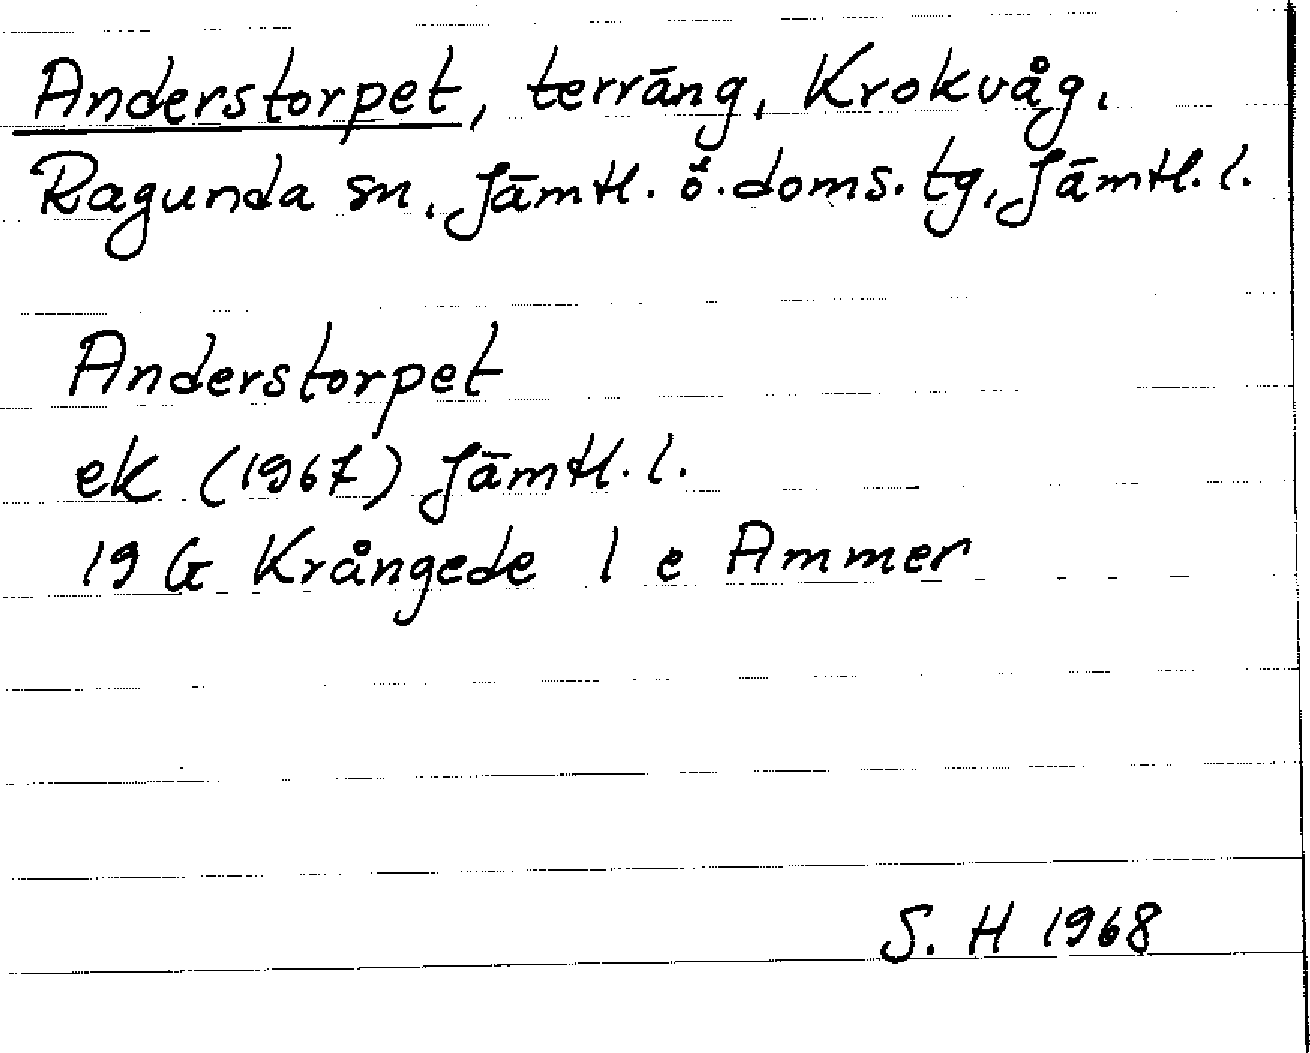 Anderstorpet, terräng, Krokvåg.
Ragunda sn, Jämtl. ö. doms. tg, Jämtl. l.
Anderstorpet
ek (1967) Jämtl. l.
19 G Krångede 1 e Ammer
S. H 1968